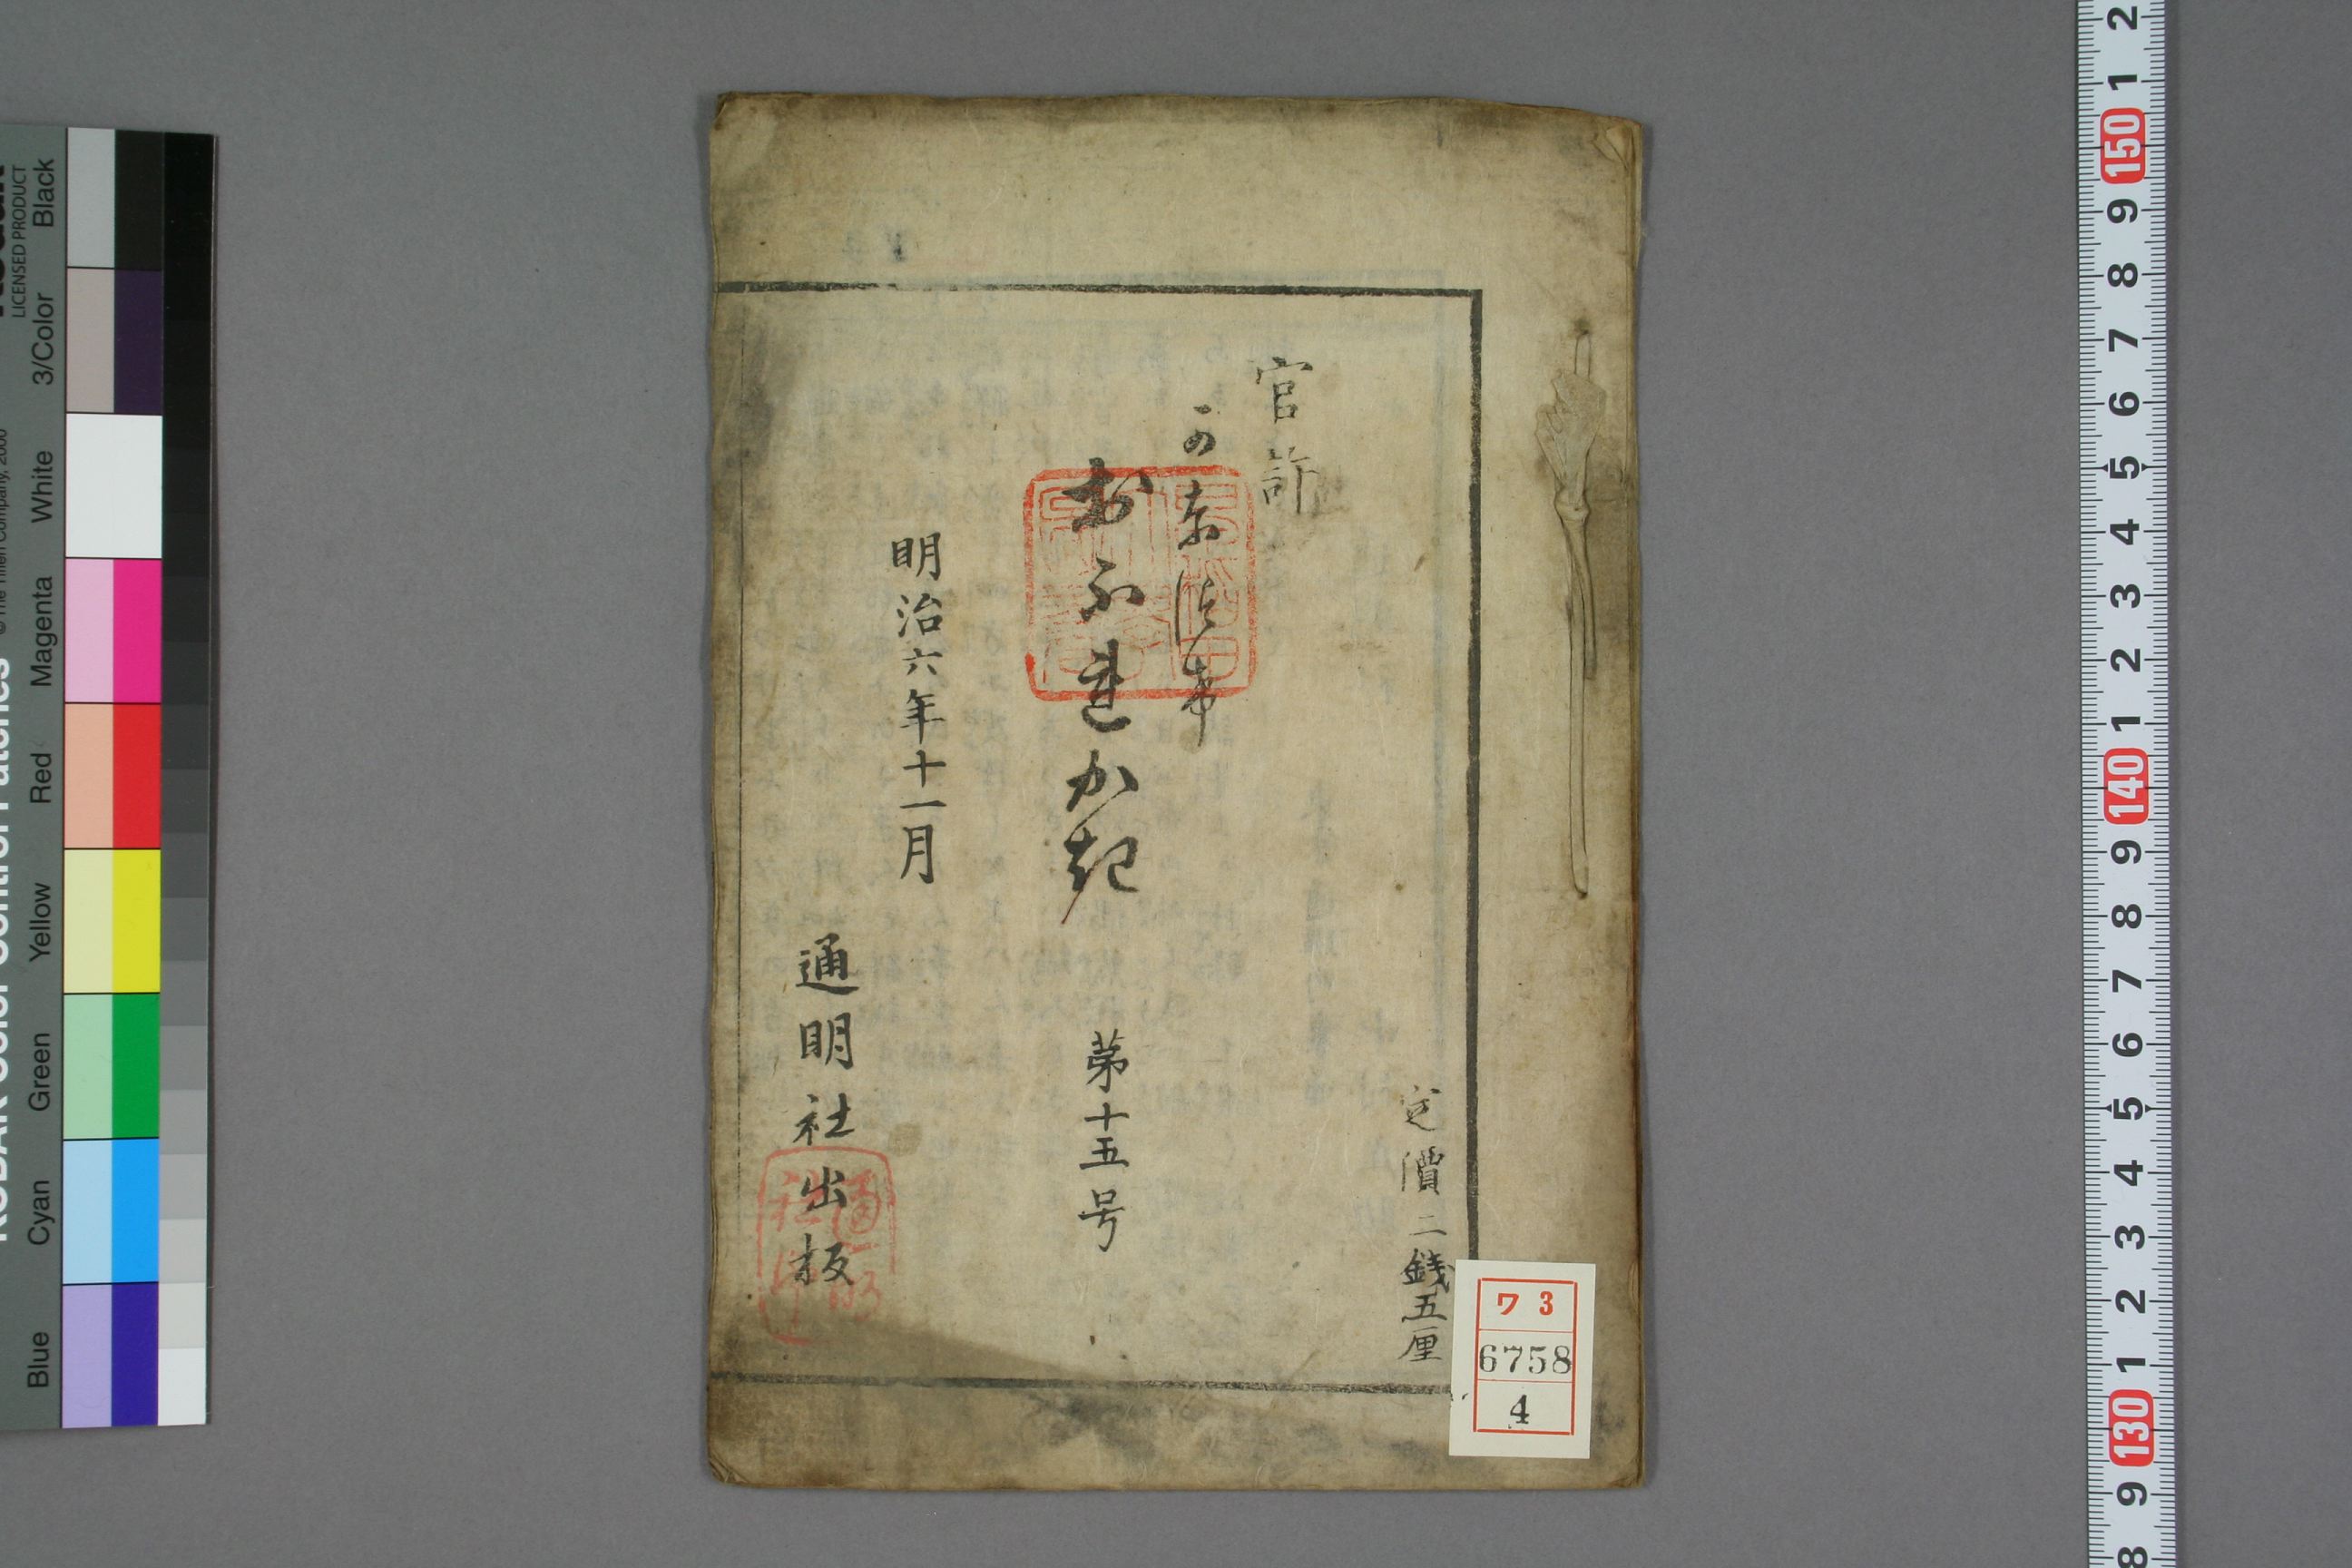 定價二錢五厘
官許
可奈徒希
お不連か起 第十五号
明治六年十一月
通明社出板
ワ 3
6758
4
LICENSED PRODUCT
Black
3/Color
White
Magenta
Red
Yellow
Green
Cyan
Blue
2
1
150
9
8
7
6
5
4
3
2
1
140
9
8
7
6
5
4
3
2
1
130
9
8